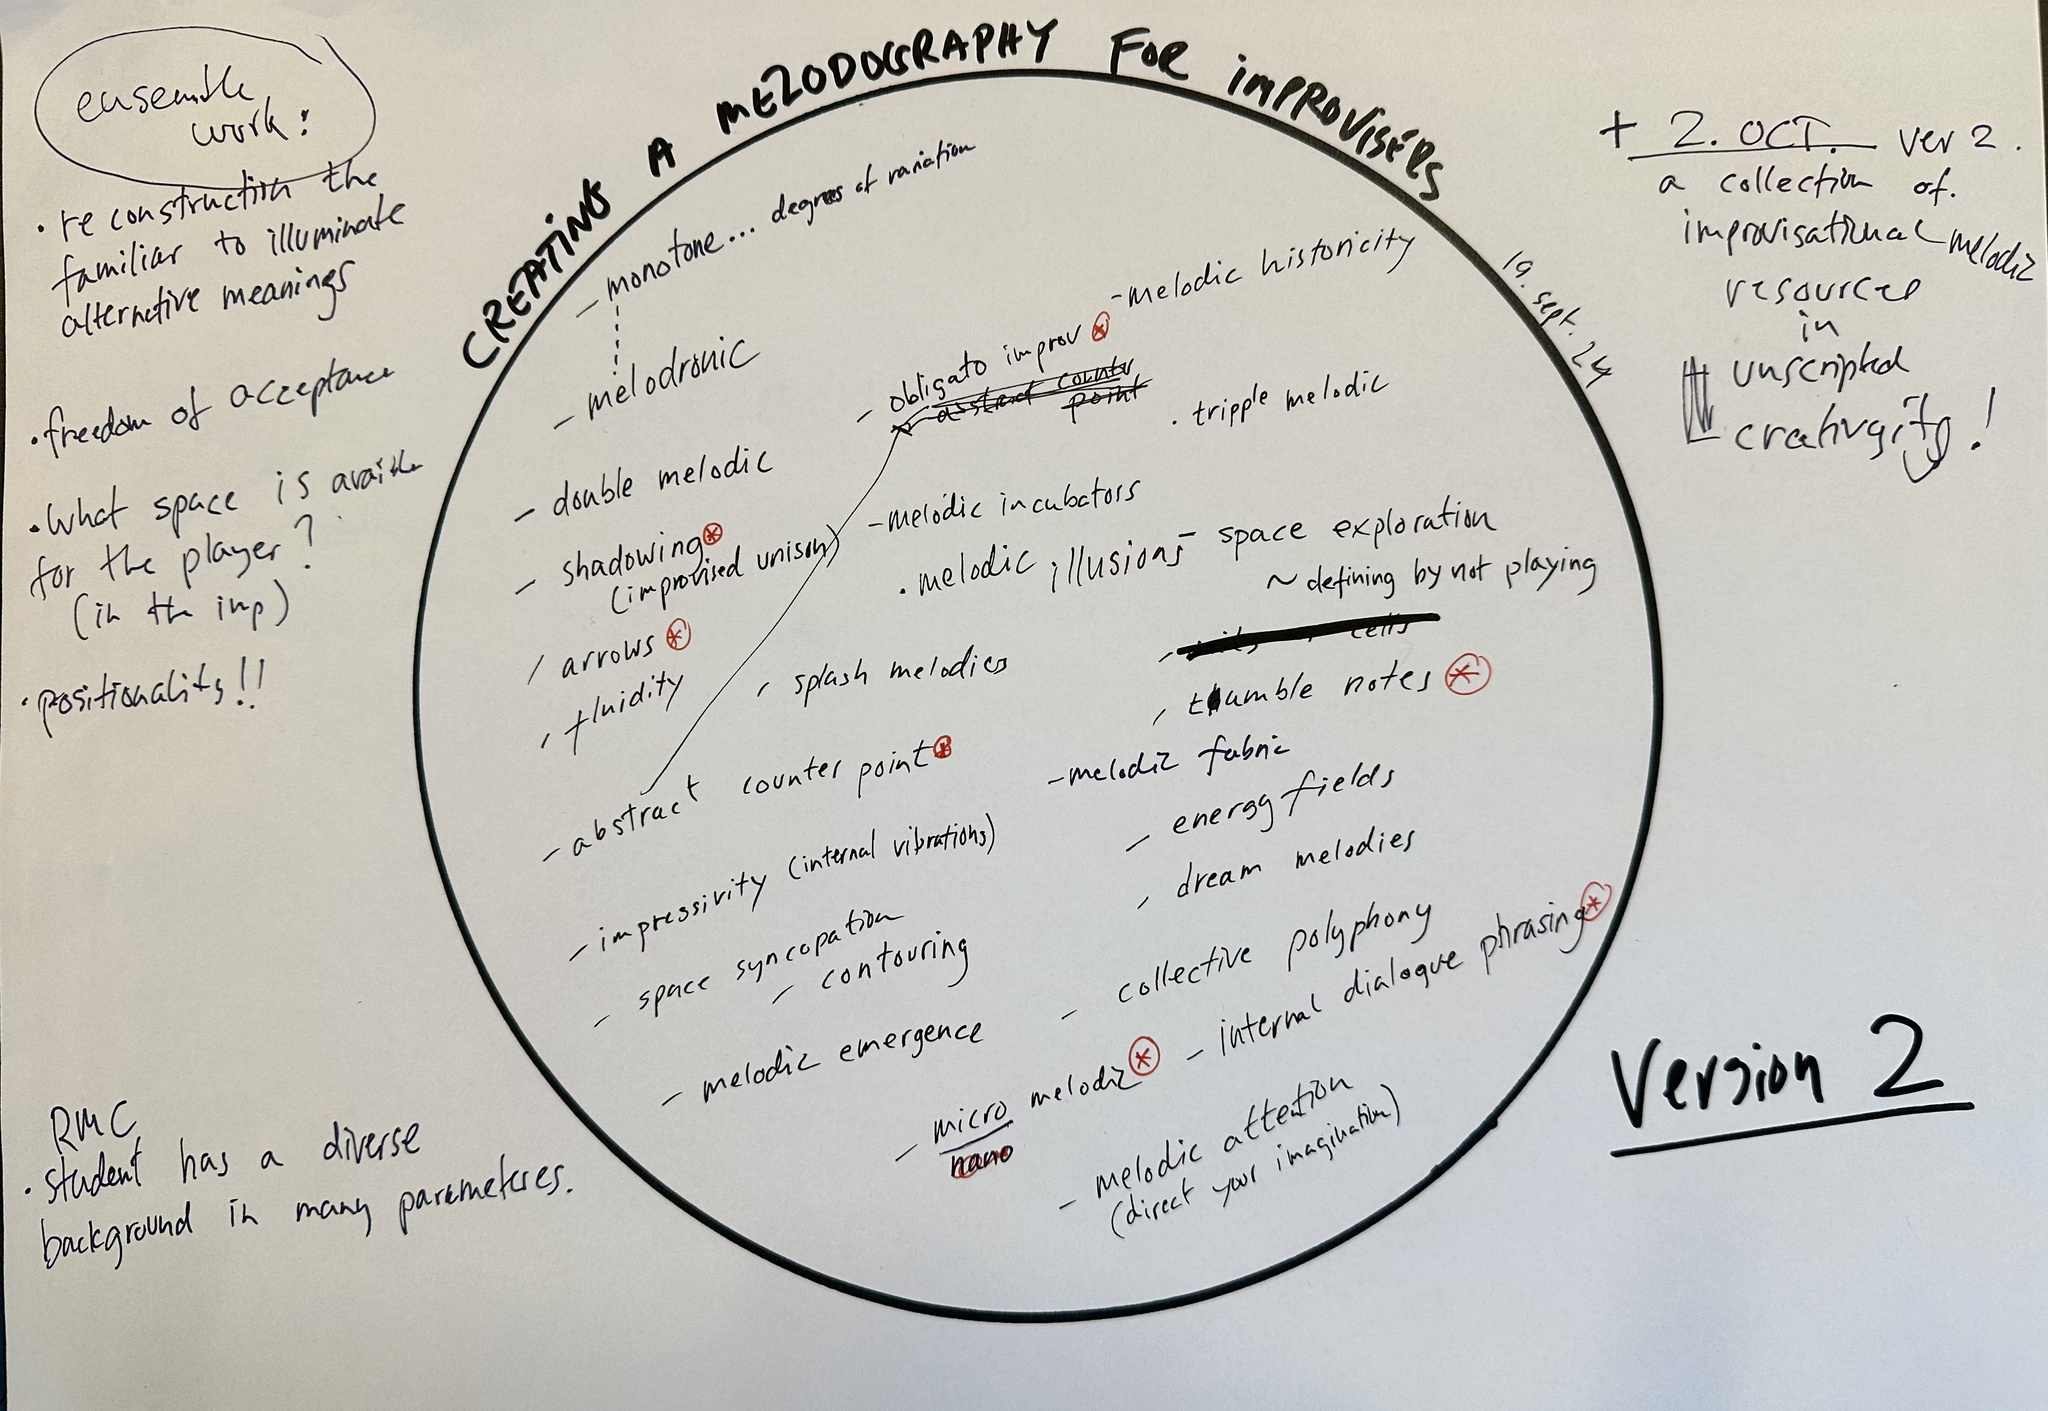 ensemble
work:
• re construction the
familiar to illuminate
alternative meanings
• freedom of acceptance
• What space is
for the player?
(in the imp)
• positionality!!
RMC
• student has a diverse
background in many parameteres.
CREATING A MELODOGRAPHY FOR IMPROVISERS
19. sept. 24
- monotone... degrees of variation
- melodronic
- double melodic
- shadowing
(improvised unison)
- arrows
- fluidity
- abstract counter point
- impressivity (internal vibrations)
- space syncopation
- contouring
- melodic emergence
- melodic historicity
- obligato improv
abstract counter
point
• tripple melodic
- melodic incubators
• melodic illusions
- space exploration
~ defining by not playing
- splash melodies
cells
- thumble notes
- melodic fabric
- energy fields
- dream melodies
- collective polyphony
- internal dialogue phrasing
- micro melodic
nano
- melodic attention
(direct your imagination)
+ 2. OCT. ver 2.
a collection of.
improvisational melodic
resources
in
unscripted
Version 2